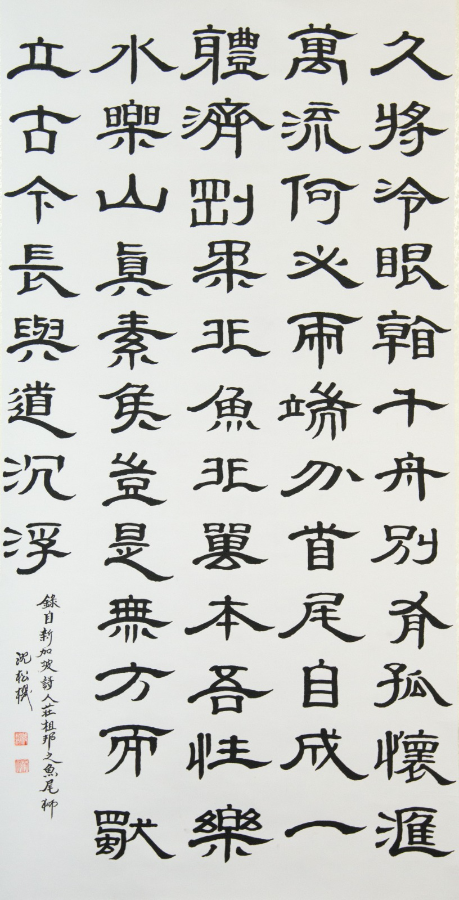 久將冷眼看千舟別有孤懷滙
萬流何必兩端分首尾自成一
體濟剛柔非魚非本吾性樂
水樂山真素侯豈是無方而默
立古今長與道沉浮
錄自新加坡詩人莊祖邦之魚尾獅
沈松